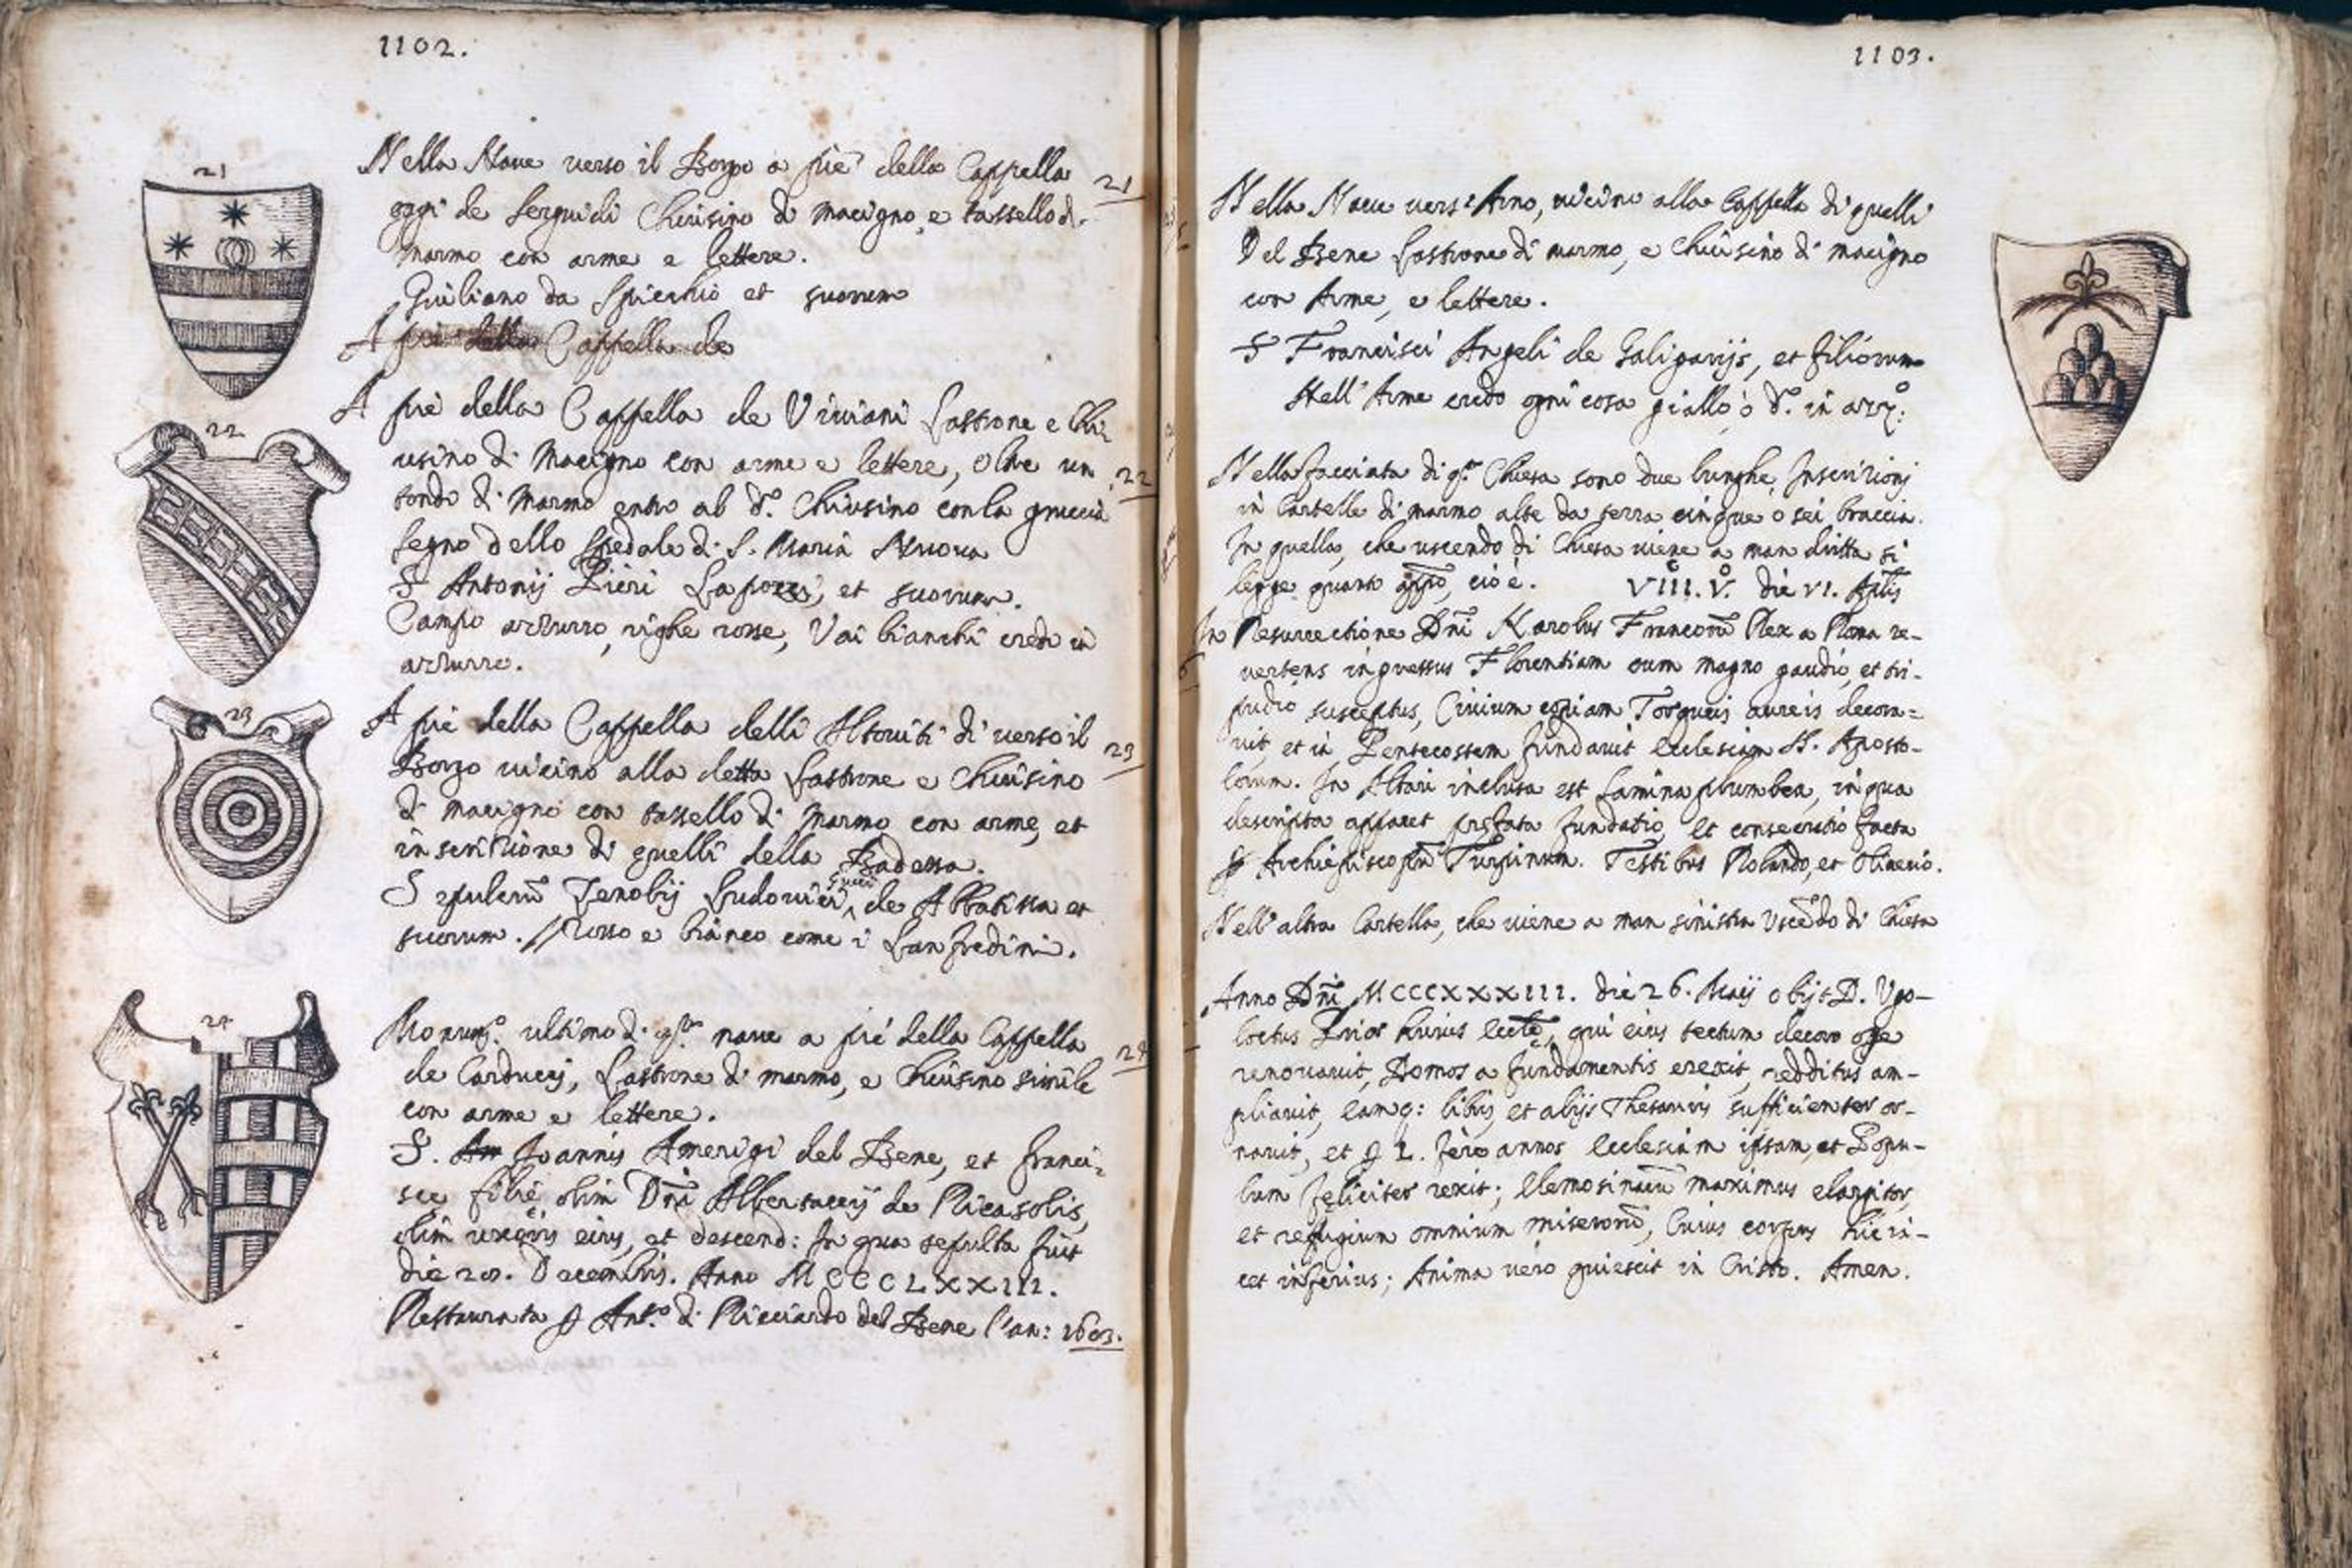 1102.
21
Nella Naue uerso il Borgo a piè della Cappella
oggi de Serguidi Chiusino di macigno, e tassello di
marmo con arme e lettere.
21
Giuliano da Spicchio et suorum
A piè della Cappella de
22
A piè della Cappella de Viuiani Lastrone e Chi-
usino di Macigno con arme e lettere, oltre un
22
tondo di Marmo entro al d.o Chiusino con la gruccia
segno dello Spedale di S. Maria Nuoua
S Antonij Pieri Lapozzi, et suorum.
Campo azzurro, righe rosse, Vai bianchi credo in
azzurro.
23
A piè della Cappella delli Altouiti di uerso il
Borgo uicino alla detta Lastrone e Chiusino
23
di macigno con tassello di marmo con arme, et
inscrizione di quelli della Badessa.
Sepulcrū Zenobij Ludouici, de Abbatissa et
suorum. // Rosso e bianco come i Lanfredini.
24
Monum.o ultimo di q.sta naue a piè della Cappella
24
de Carducij, Lastrone di marmo, e Chiusino simile
con arme e lettere.
S. An Joannis Amerigi del Bene, et franci-
sce filie olim Dn̄i Albertaccij de Ricasolis,
olim uxoris eius, et descend: In qua sepulta fuit
die 20. Decembris. Anno MCCCLXXIII.
Restaurata p Ant.o di Ricciardo del Bene l'an: 1603.
1103.
Nella Naue uerso Arno, uicino alla Cappella di quelli
Del Bene Lastrone di marmo, e Chiusino di macigno
con Arme, e lettere.
S Francisci Angeli de Galigarijs, et filiorum
Nell'Arme credo ogni cosa giallo ò d.o in azz.o:
Nella facciata di q.sta Chiesa sono due lunghe Inscrizioni
in Cartelle di marmo alte da terra cinque o sei braccia.
In quella, che uscendo di Chiesa uiene a man dritta si
legge quanto app̄o, cioè. VIII. V. die VI. Ap̄lis
In Resurrectione Dn̄i Karolus Francorū Rex a Roma re-
uertens ingressus Florentiam cum magno gaudio, et tri-
pudio susceptus, Ciuium copiam Torqueis aureis decora-
uit, et in Pentecostem fundauit Ecclesiam SS. Aposto-
lorum. In Altari inclusa est Lamina plumbea, in qua
descripta apparet prefata fundatio, et consecratio facta
p Archiepiscopū Turpinum. Testibus Rolando, et Oliuerio.
Nell'altra Cartella, che uiene a man sinistra uscēdo di Chiesa
Anno Dn̄i MCCCXXXIII. die 26. Maij obijt D. Ugo-
lottus Prior huius eccl̄e, qui eius tectum decoro ope
renouauit, Domos a fundamentis erexit, redditus am-
pliauit, eamq: libris, et alijs Thesauris sufficienter or-
nauit, et p L. ferè annos Ecclesiam ipsam, et Popu-
lum feliciter rexit; Elemosinarū maximus elargitor,
et refugium omnium miserorū, Cuius corpus hic ia-
cet inferius; Anima uerò quiescit in Cristo. Amen.